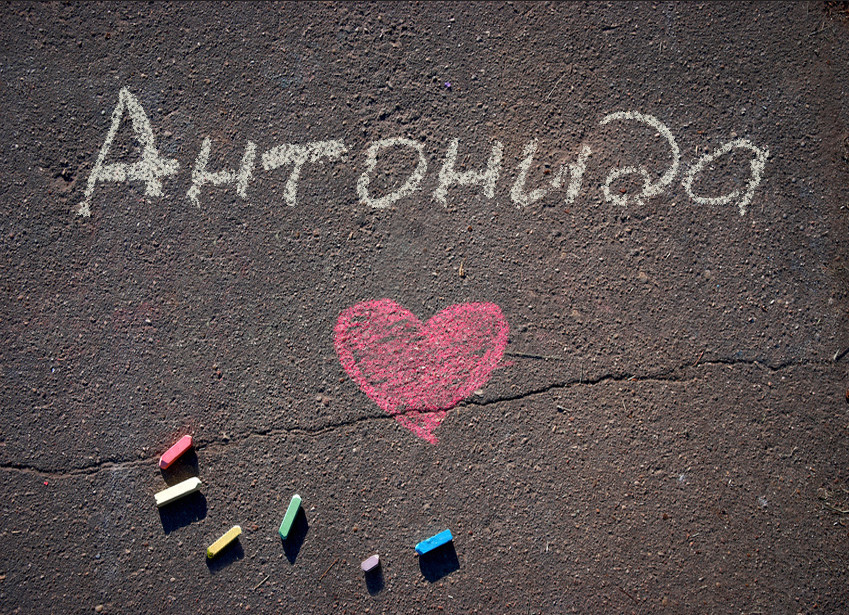 Антонида